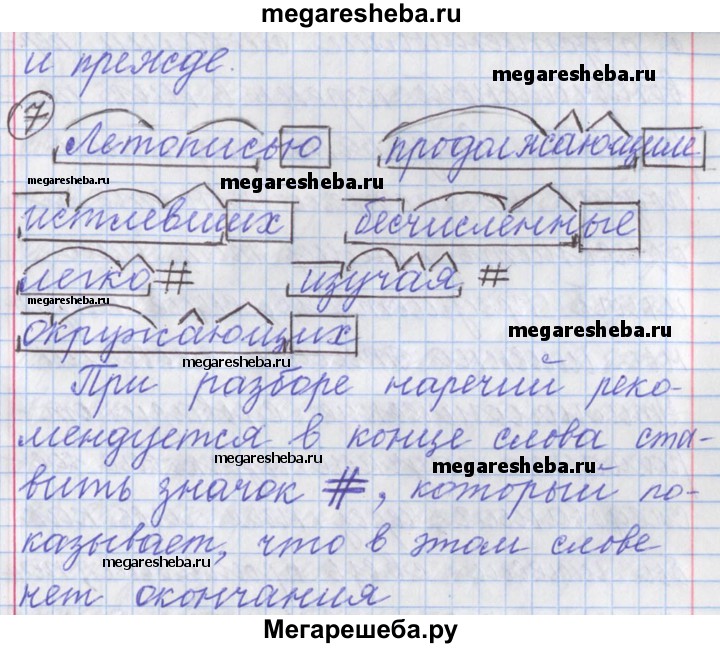 megaresheba.ru
и прежде. megaresheba.ru
7 Летописью продолжающие
megaresheba.ru megaresheba.ru megaresheba.ru
истлевших бесчисленные
легко # изучая #
megaresheba.ru
окружающих megaresheba.ru
megaresheba.ru
При разборе наречий реко-
мендуется в конце слова ста-
megaresheba.ru megaresheba.ru
вить значок #, который по-
казывает, что в этом слове
megaresheba.ru
нет окончания
Мегарешеба.ру